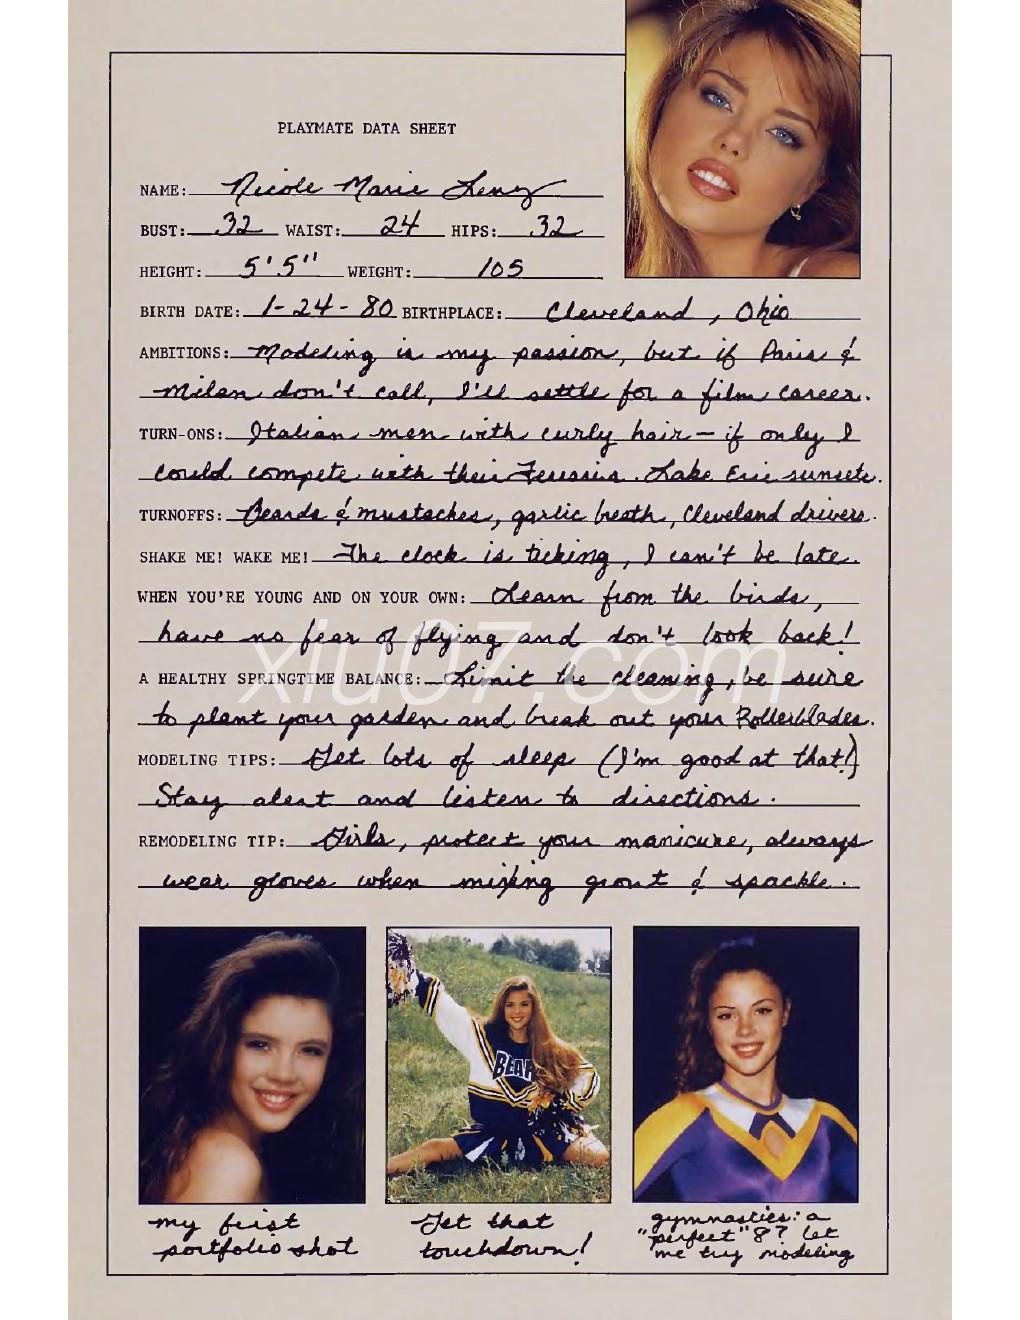 PLAYMATE DATA SHEET
NAME: Nicole Marie Lenz
BUST: 32 WAIST: 24 HIPS: 32
HEIGHT: 5'5" WEIGHT: 105
BIRTH DATE: 1-24-80 BIRTHPLACE: Cleveland, Ohio
AMBITIONS: Modeling is my passion, but if Paris &
Milan don't call, I'll settle for a film career.
TURN-ONS: Italian men with curly hair — if only I
could compete with their Ferraris. Lake Erie sunsets.
TURNOFFS: Beards & mustaches, garlic breath, Cleveland drivers.
SHAKE ME! WAKE ME! The clock is ticking, I can't be late.
WHEN YOU'RE YOUNG AND ON YOUR OWN: Learn from the birds,
have no fear of flying and don't look back!
xiu07.com
A HEALTHY SPRINGTIME BALANCE: Limit the cleaning, be sure
to plant your garden and break out your Rollerblades.
MODELING TIPS: Get lots of sleep (I'm good at that!)
Stay alert and listen to directions.
REMODELING TIP: Girls, protect your manicure, always
wear gloves when mixing grout & spackle.
BEAR
my first
portfolio shot
Get that
touchdown!
gymnastics: a
"perfect" 8? let
me try modeling